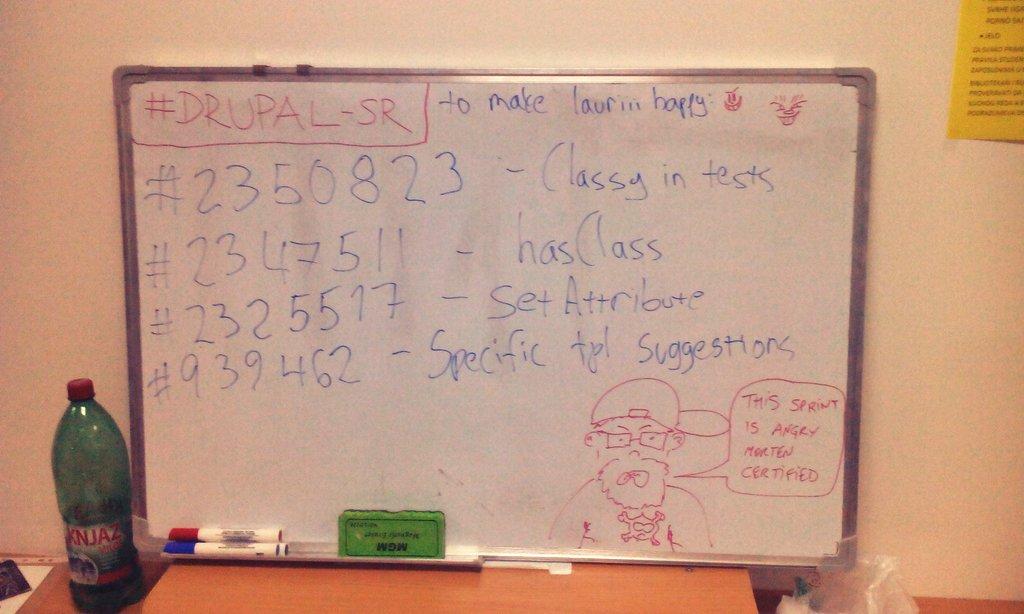 #DRUPAL-SR to make lauriii happy:
#2350823 - Classy in tests
#2347511 - hasClass
#2325517 - SetAttribute
#939462 - Specific tpl suggestions
THIS SPRINT
IS ANGRY
MORTEN
CERTIFIED
KNJAZ
MGM
Magnetic Eraser
JELO